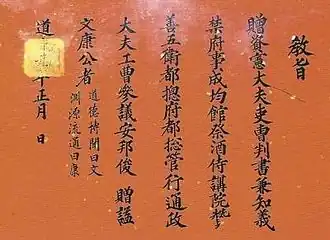 敎旨
贈資憲大夫吏曹判書兼知義
禁府事成均館祭酒侍講院贊
善五衛都摠府都摠管行通政
大夫工曹參議安邦俊 贈諡
文康公者 道德博聞曰文
淵源流通曰康
道 正月 日